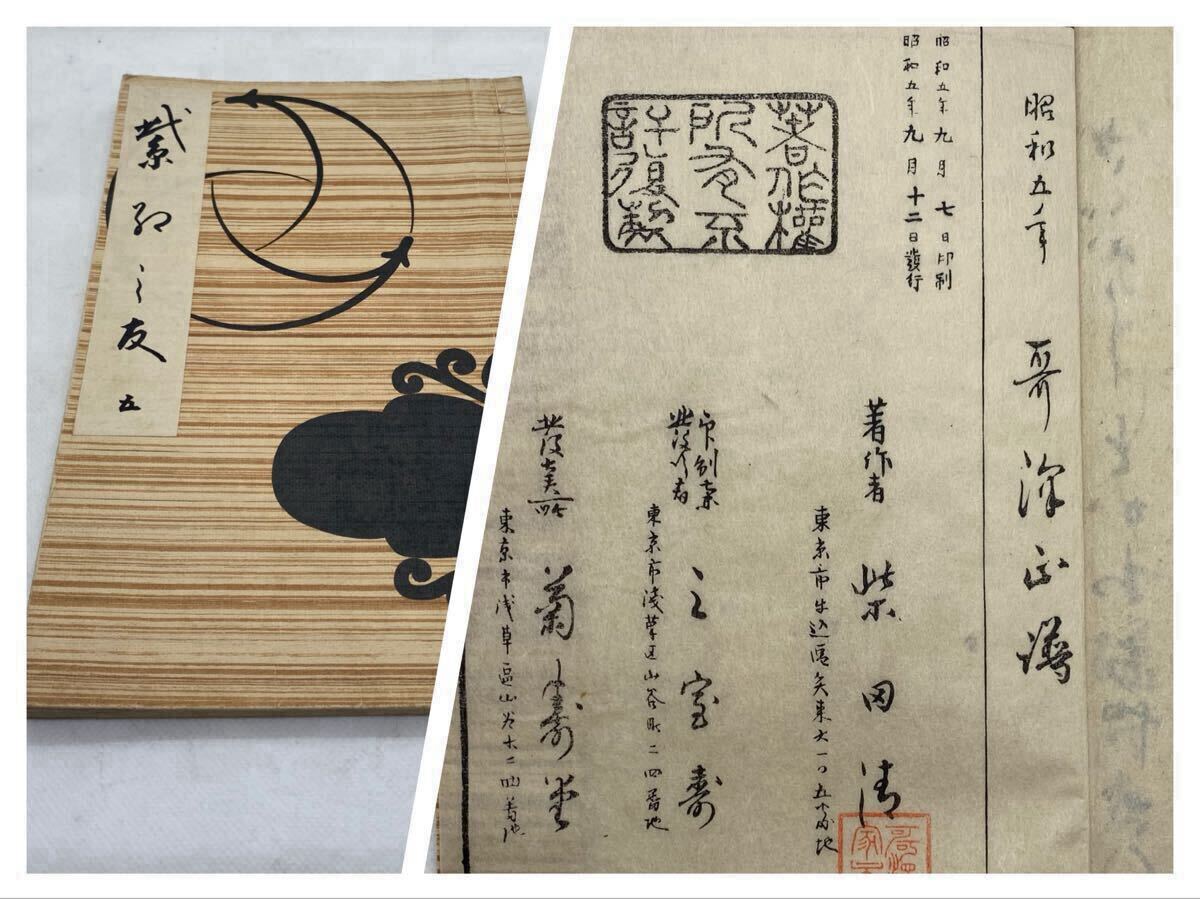 之友 五
昭和五年 哥澤正譜
昭和五年九月七日印刷
昭和五年九月十二日發行
著作權
所有不
許複製
著作者 柴田清
東京市牛込區矢来 一〇五番地
印刷兼
發行者 三室壽
東京市淺草區山谷町二四番地
發賣所 菊壽堂
東京市浅草區山谷町二四番地